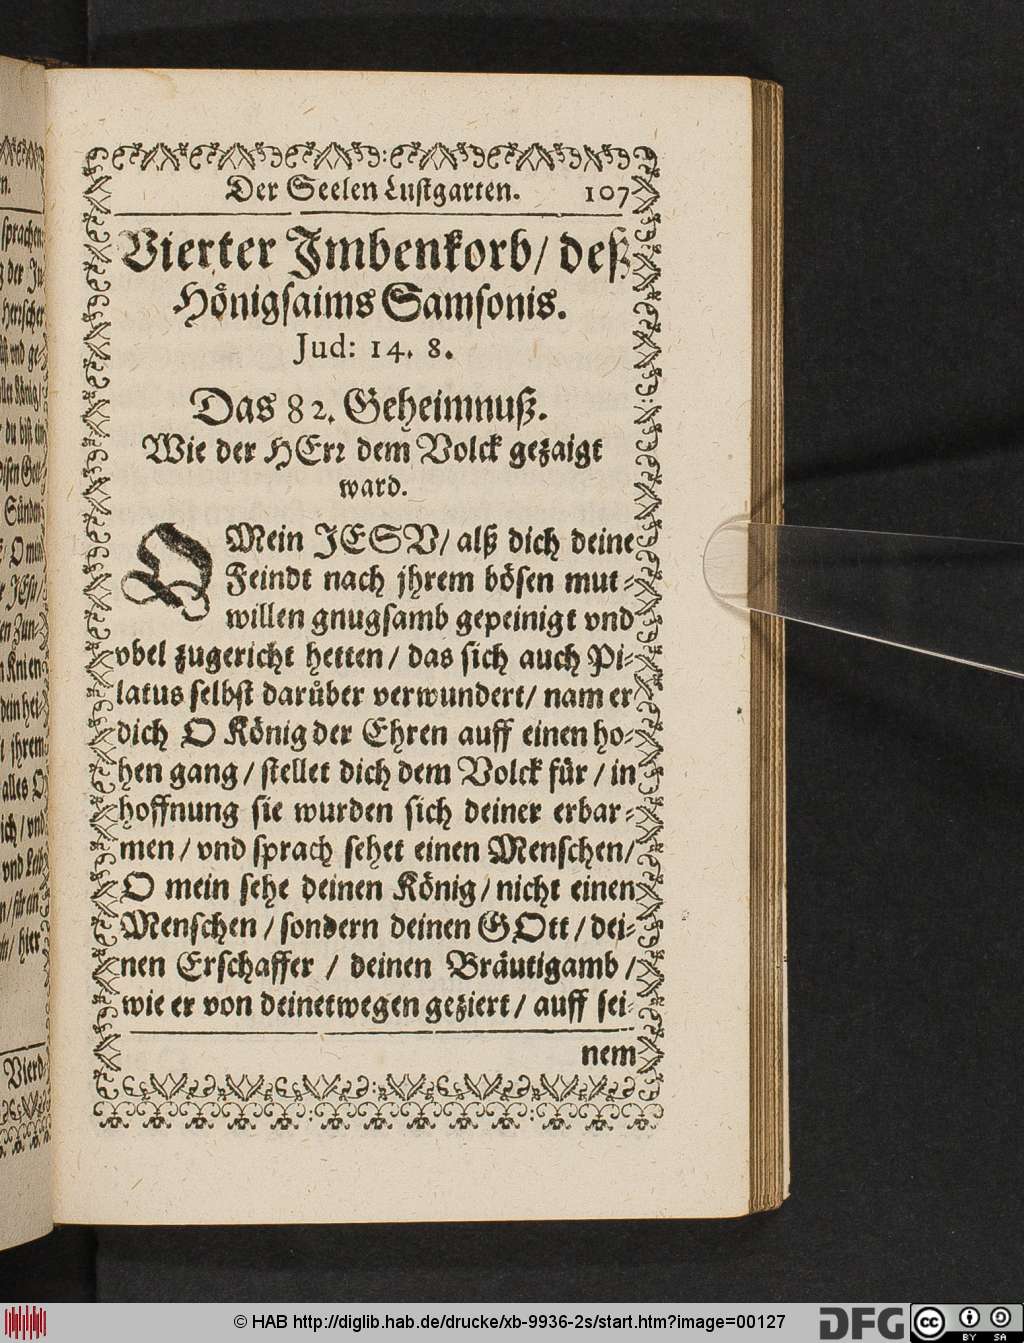 Der Seelen Lustgarten. 107
Vierter Imbenkorb/ deß
Hönigsaims Samsonis.
Jud: 14. 8.
Das 82. Geheimnuß.
Wie der HErr dem Volck gezaigt
ward.
O Mein JESV/ alß dich deine
Feindt nach jhrem bösen mut-
willen gnugsamb gepeinigt vnd
vbel zugericht hetten/ das sich auch Pi-
latus selbst darüber verwundert/ nam er
dich O König der Ehren auff einen ho-
hen gang/ stellet dich dem Volck für/ in
hoffnung sie wurden sich deiner erbar-
men/ vnd sprach sehet einen Menschen/
O mein sehe deinen König/ nicht einen
Menschen/ sondern deinen GOtt/ dei-
nen Erschaffer/ deinen Bräutigamb/
wie er von deinetwegen geziert/ auff sei-
nem
sprachen
der
Herrscher
vnd ge-
König/
du bist ein
Sünden
O
Zun-
Knien
dein hei-
jhrem
alles
ich/ vnd
vnd
hier
Vierd-
© HAB http://diglib.hab.de/drucke/xb-9936-2s/start.htm?image=00127
DFG
cc
BY SA